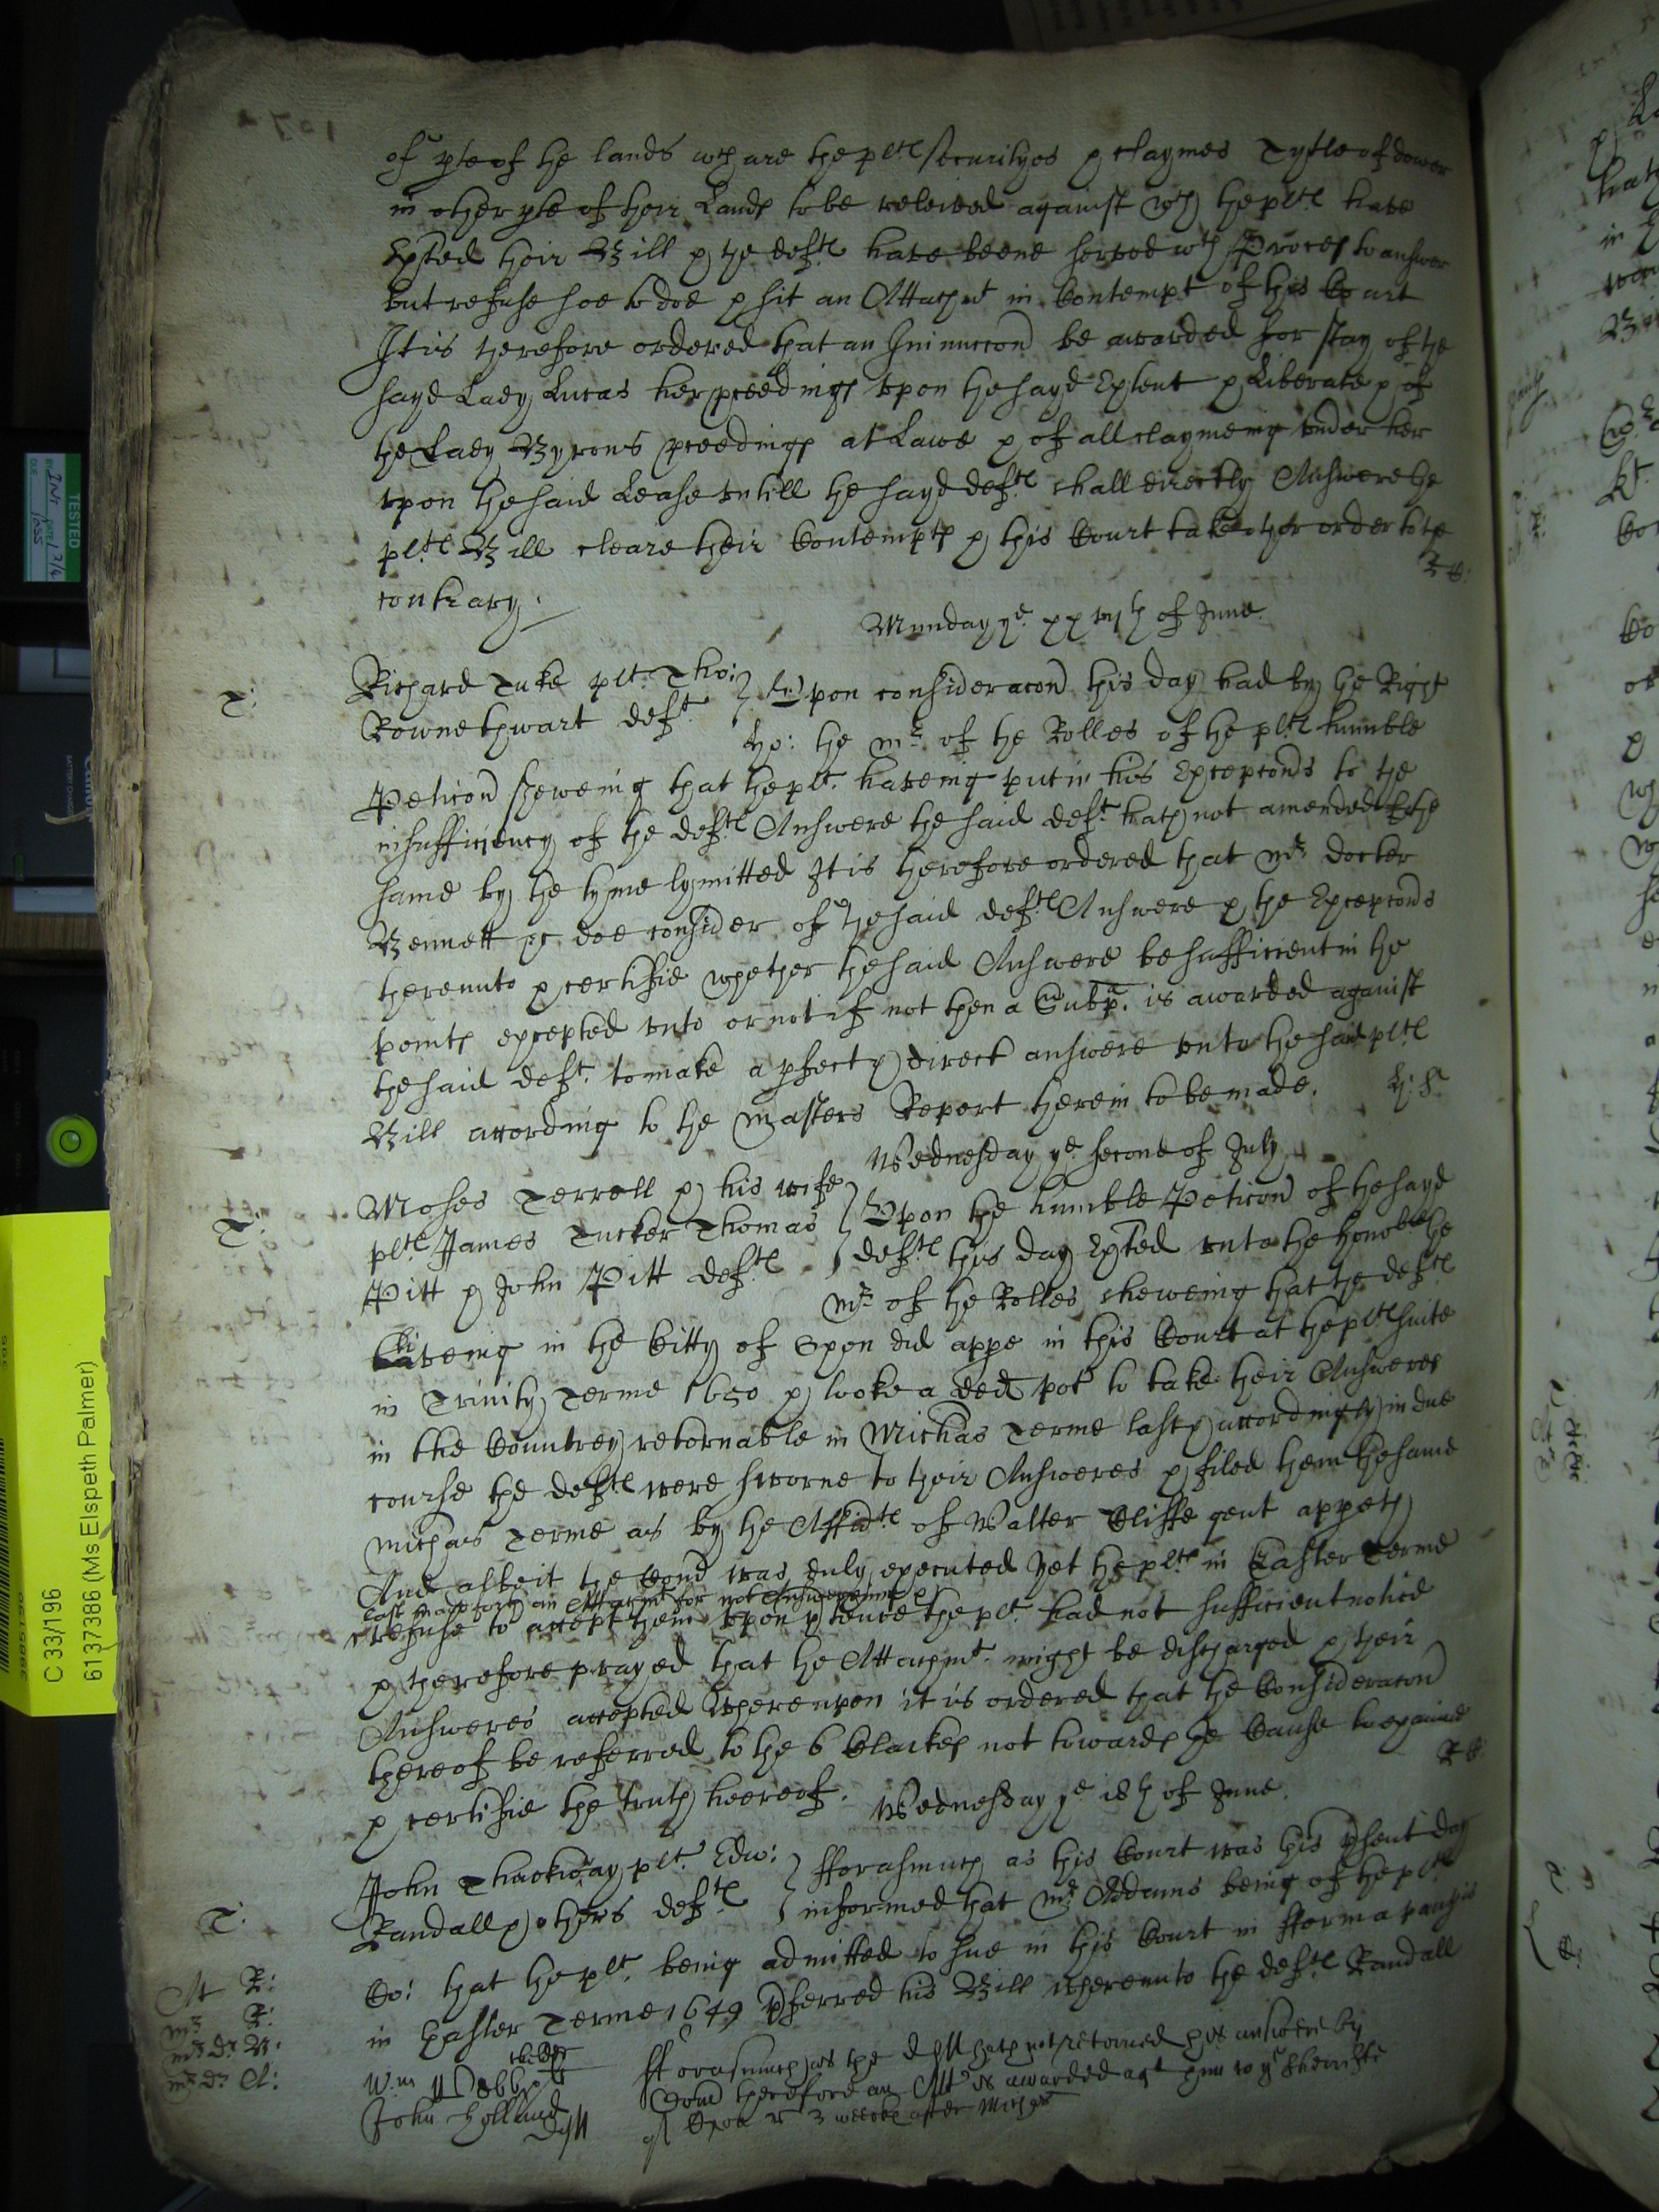 of pte of the lands wch are the pltes securityes & claymes Tytle of dower
in other pte of their Lands to be releived against wch the pltes have
Exhted their Bill & the deftes have beene served wth Proces to answer
but refuse soe to doe & sit an Attachmt in Contempt of this Court
It is therefore ordered that an Iniunccon be awarded for stay of the
sayd Lady Lucas her pceedings upon the sayd Extent & Liberate & of
the Lady Byrons pceedings at Lawe & of all claymeing under her
upon the said Lease untill the sayd deftes shall directly Answere the
pltes Bill cleare their Contempts & this Court take other order to the
contrary.
Munday ye xxiijth of June
T:
Richard Tuke plt. Tho:
Rownethwart deft
Upon consideracon this day had by the Right
Ho: the Mr of the Rolles of the pltes humble
Peticon sheweing that the plt. haveing put in his Excepcons to the
insufficiency of the deftes Answere the said deft hath not amended the
same by the tyme lymitted It is therefore ordered that Mr docter
Bennett &c doe consider of the said deftes Answere & the Excepcons
thereunto & certifie whether the said Answere be sufficient in the
points excepted unto or not if not then a Subpa. is awarded against
the said deft. to make a pfect & direct answere unto the said pltes
Bill according to the Masters Report herein to be made.
Wednesday ye second of July
T:
Moses Terrell & his wife
pltes James Tucker Thomas
Pitt & John Pitt deftes
Upon the humble Peticon of the sayd
deftes this day Exhted unto the honoble the
Mr of the Rolles sheweing that the deftes
liveing in the Citty of Exon did appe in this Court at the pltes suite
in Trinity Terme 1650 & tooke a ded pot to take their Answeres
in the Countrey retornable in Michas Terme last & accordingly in due
course the deftes were sworne to their Answeres & filed them the same
Michas Terme as by the Affidtes of Walter Cliffe gent appeth
And albeit the Comd was duly executed yet the pltes in Easter Terme
last made forth an Attachmt for not Answereing &
refuse to accept them upon ptence the plt. had not sufficient notice
& therefore prayed that the Attachmt. might be discharged & their
Answeres accepted Whereupon it is ordered that the Consideracon
thereof be referred to the 6 Clarkes not towards the Cause to examine
& certifie the truth hereof.
Wednesday ye 18th of June
T:
John Thackway plt. Edw:
Randall & others deftes
fforasmuch as this Court was this psent day
informed that Mr Addams being of the pltes
Co: that the plt. being admitted to sue in this Court in fforma paupis
in Easter Terme 1649 pferred his Bill whereunto the deftes Randall
fforasmuch as the deft hath not retorned his answere by
Comd therefore an Att is awarded agt him to ye Sherriffe
John Holland
C 33/196
6137386 (Ms Elspeth Palmer)
TESTED